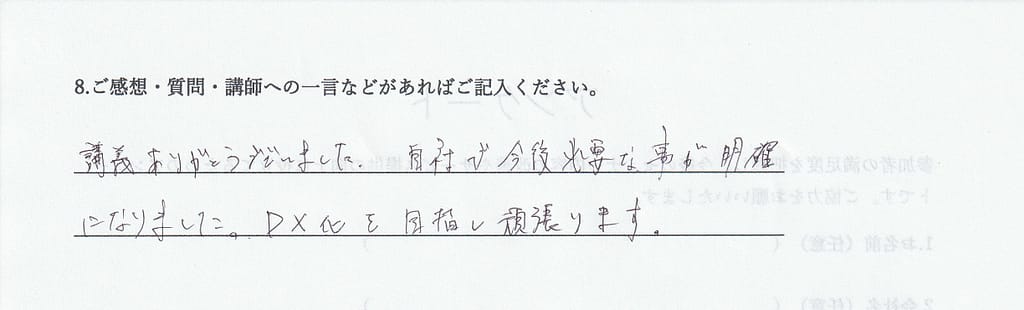 8.ご感想・質問・講師への一言などがあればご記入ください。
講義ありがとうございました。自社で今後必要な事が明確
になりました。DX化を目指し頑張ります。